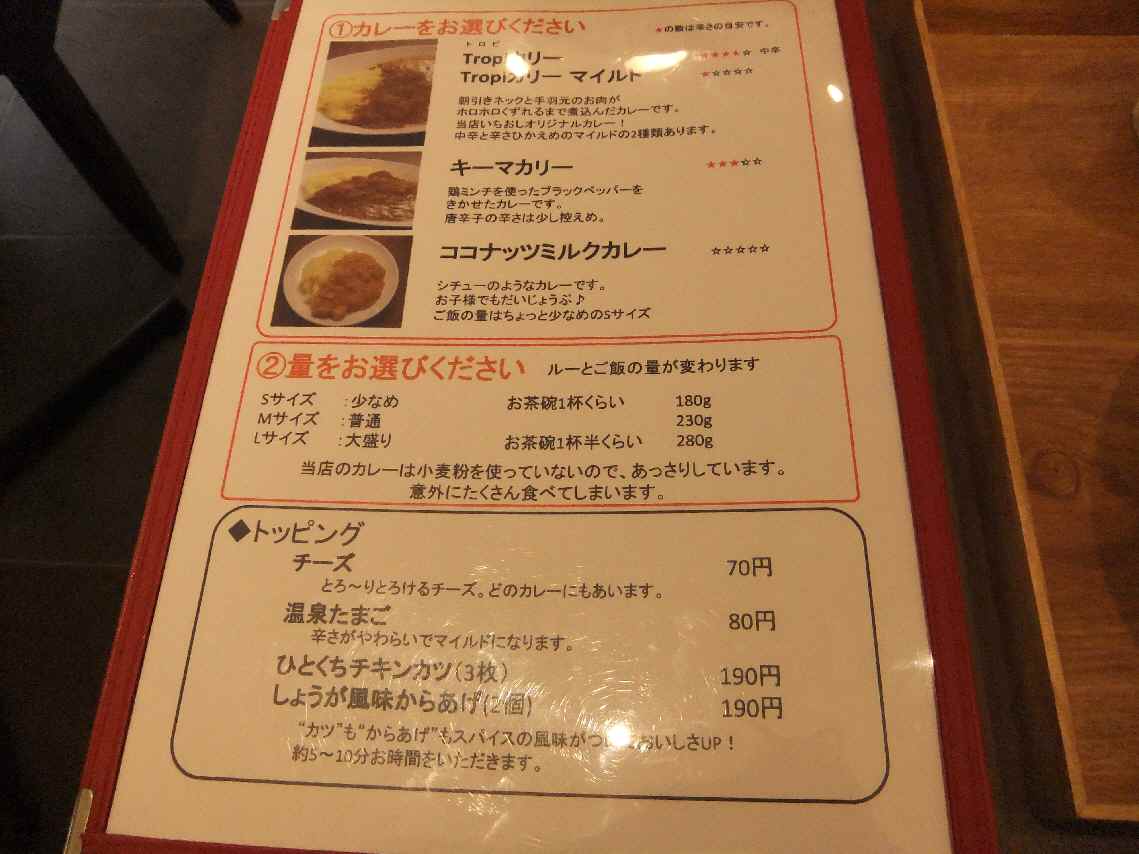 ①カレーをお選びください
★の数は辛さの目安です。
トロピ
Tropiカリー ★★★★☆ 中辛
Tropiカリー マイルド ★☆☆☆☆
朝引きネックと手羽元のお肉が
ホロホロくずれるまで煮込んだカレーです。
当店いちおしオリジナルカレー！
中辛と辛さひかえめのマイルドの2種類あります。
キーマカリー ★★★☆☆
鶏ミンチを使ったブラックペッパーを
きかせたカレーです。
唐辛子の辛さは少し控えめ。
ココナッツミルクカレー ☆☆☆☆☆
シチューのようなカレーです。
お子様でもだいじょうぶ♪
ご飯の量はちょっと少なめのSサイズ
②量をお選びください ルーとご飯の量が変わります
Sサイズ ：少なめ お茶碗1杯くらい 180g
Mサイズ ：普通 230g
Lサイズ ：大盛り お茶碗1杯半くらい 280g
当店のカレーは小麦粉を使っていないので、あっさりしています。
意外にたくさん食べてしまいます。
◆トッピング
チーズ 70円
とろ～りとろけるチーズ。どのカレーにもあいます。
温泉たまご 80円
辛さがやわらいでマイルドになります。
ひとくちチキンカツ(3枚) 190円
しょうが風味からあげ(2個) 190円
“カツ”も“からあげ”もスパイスの風味がつ おいしさUP！
約5～10分お時間をいただきます。